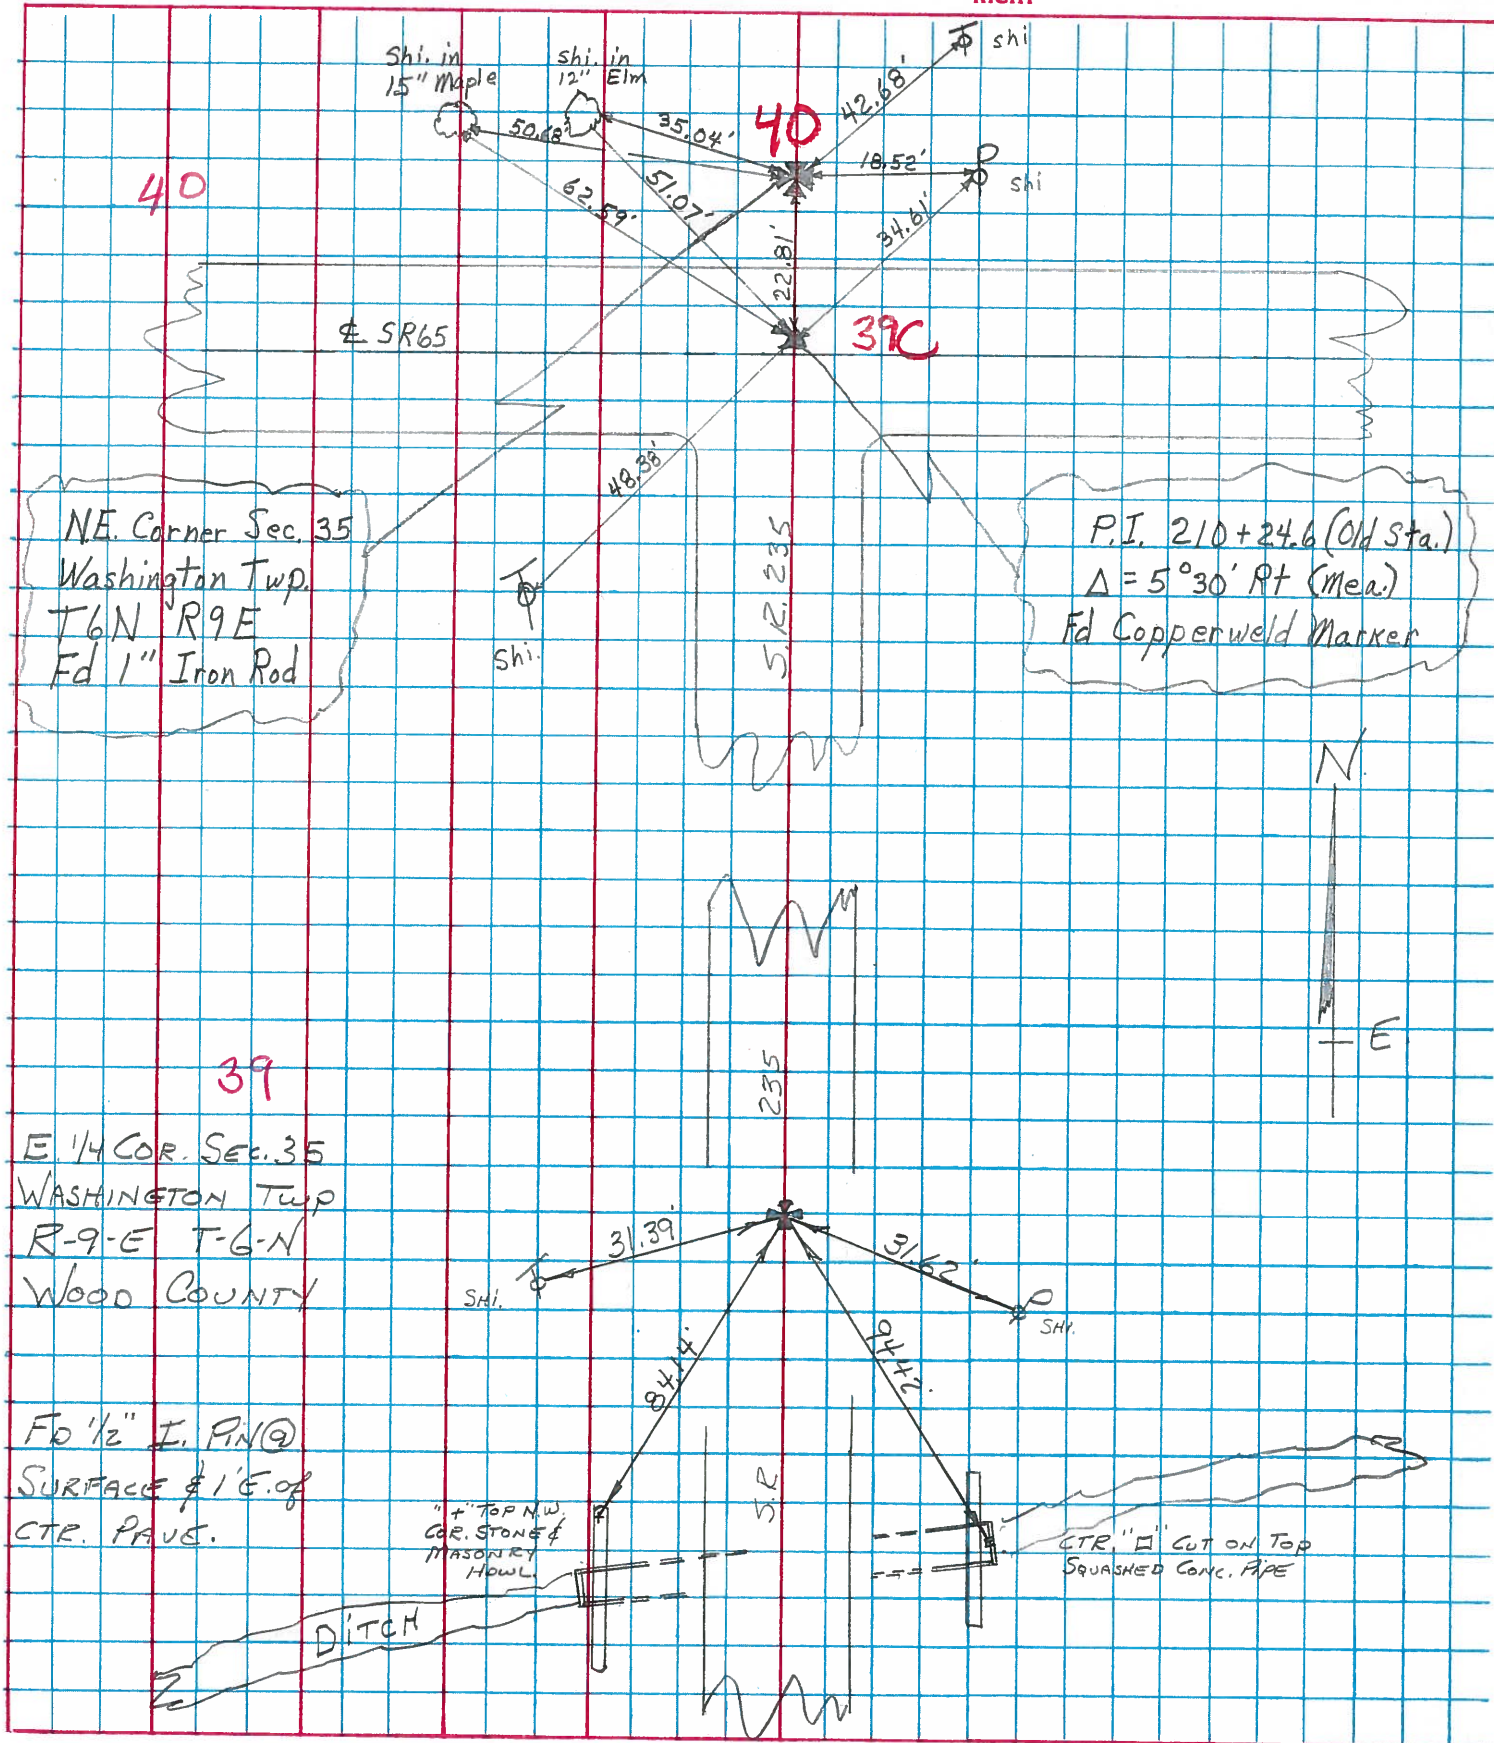 shi
Shi. in
15" Maple
shi. in
12" Elm
42.68'
40
50.68'
35.04'
18.52'
shi
40
62.59'
51.07'
22.81'
34.61'
℄ SR65
39C
48.38'
N.E. Corner Sec. 35
Washington Twp.
T6N R9E
Fd 1" Iron Rod
Shi.
S.R. 235
P.I. 210+24.6 (Old Sta.)
Δ = 5°30' Rt (Mea.)
Fd Copperweld Marker
N
E
39
235
E. 1/4 COR. SEC. 35
WASHINGTON TWP
R-9-E T-6-N
WOOD COUNTY
31.39'
31.62'
SHI.
SHI.
84.14'
94.42'
FD 1/2" I. PIN @
SURFACE & 1' E. of
CTR. PAVE.
S.R
"+" TOP N.W.
COR. STONE &
MASONRY
HDWL.
CTR. "□" CUT ON TOP
SQUASHED CONC. PIPE
DITCH